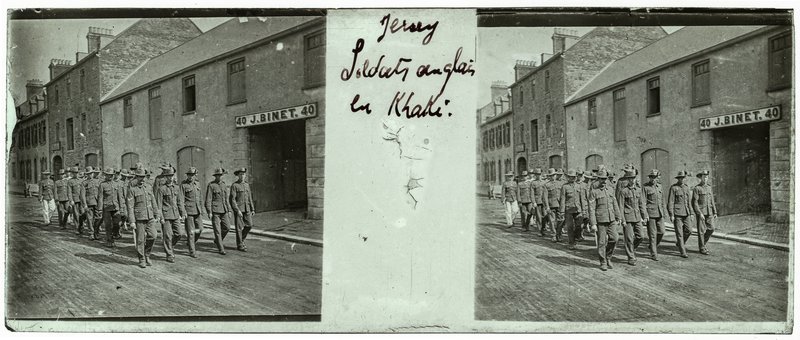 Jersey
Soldats anglais
en Khaki.
40 J. BINET. 40
40 J. BINET. 40